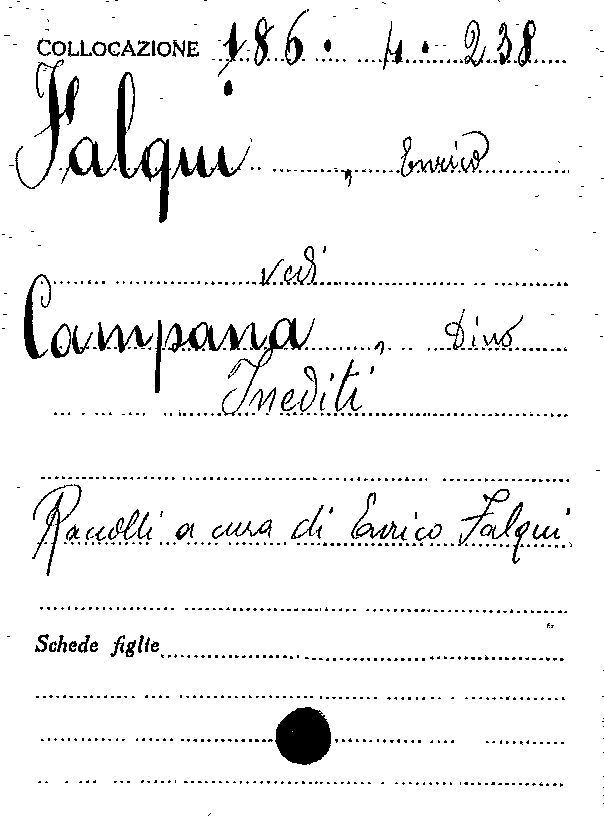 COLLOCAZIONE 186. 4. 238
Falqui, Enrico
vedi
Campana, Dino
Inediti
Raccolti a cura di Enrico Falqui
Schede figlie